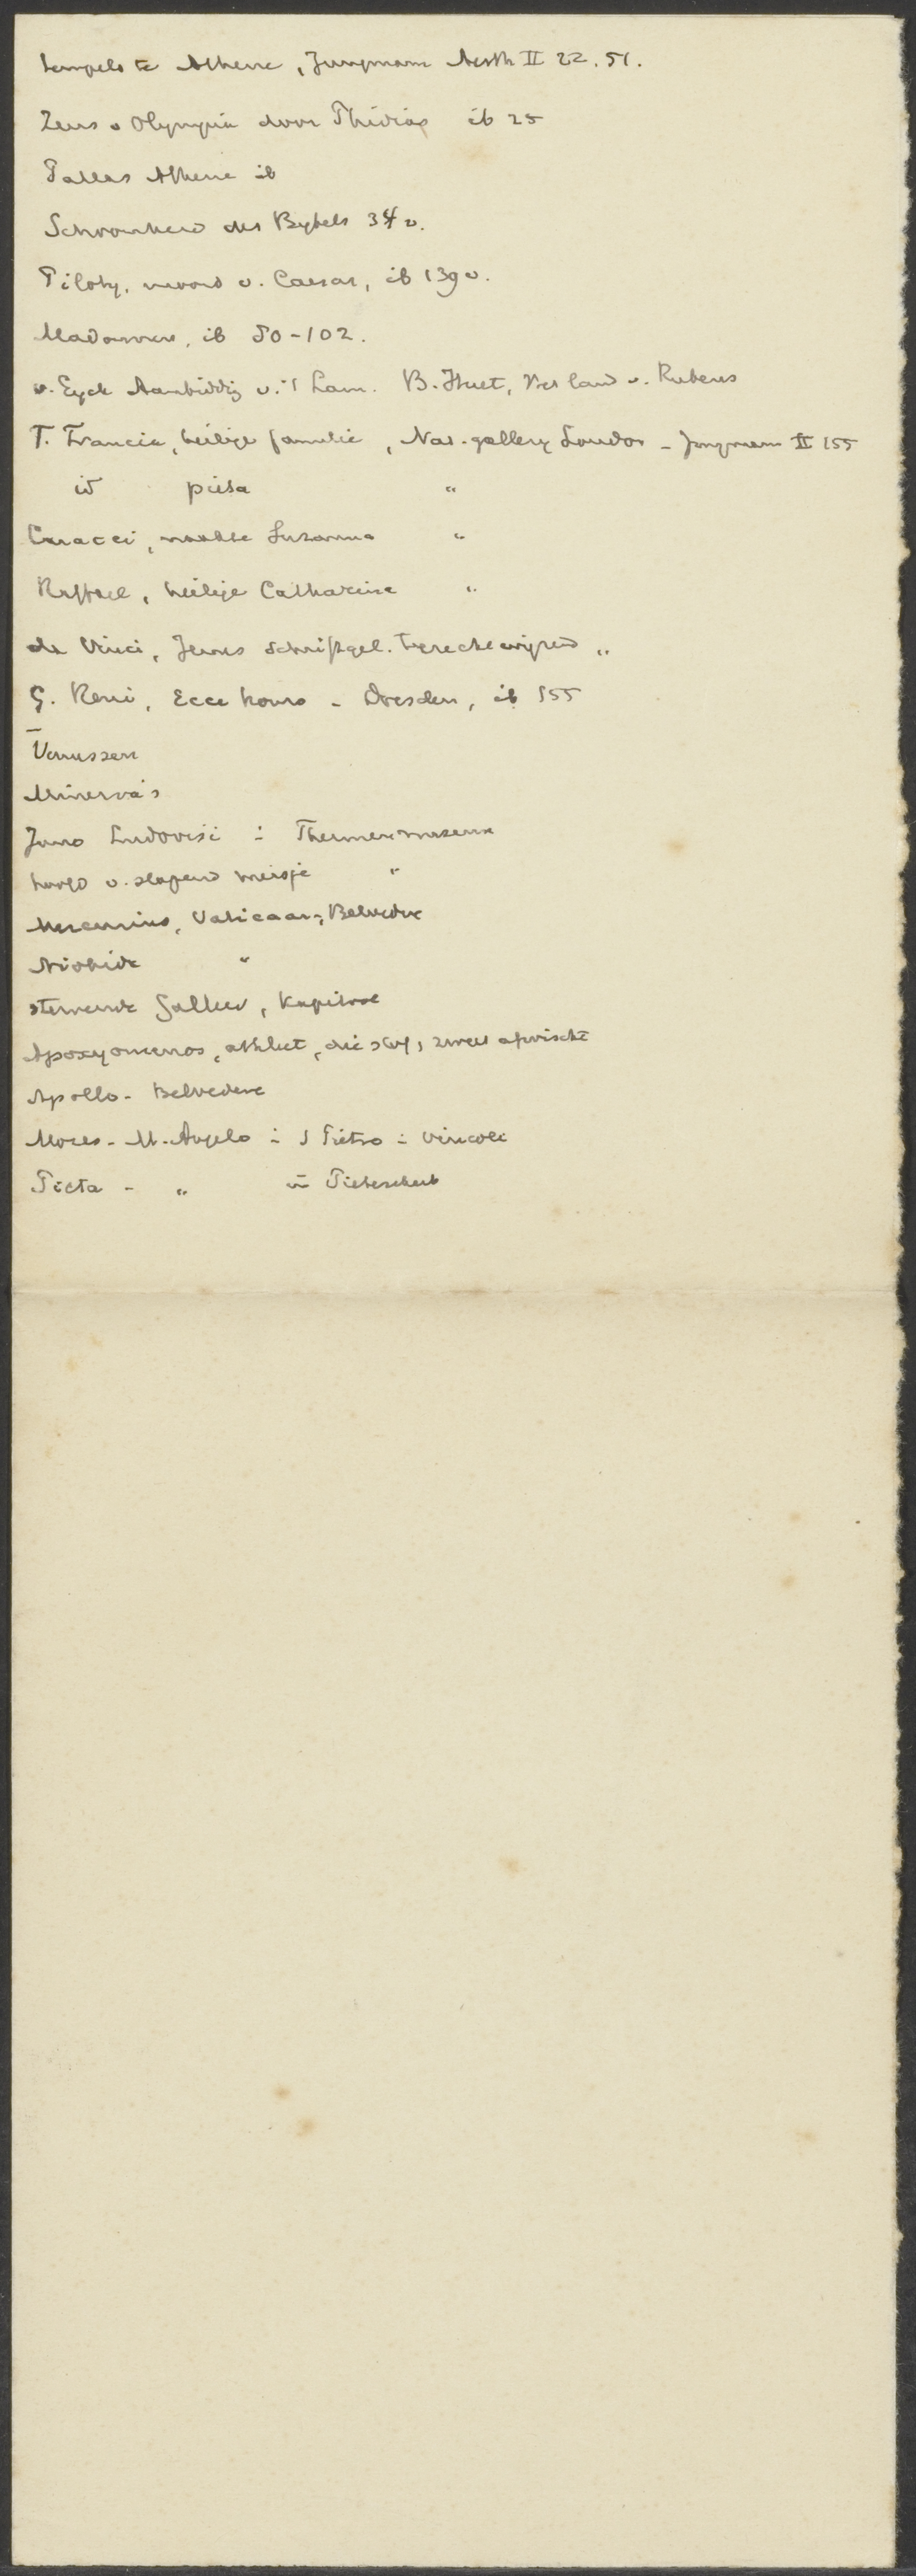 tempels te Athene, Jungmann Aesth II 22. 51.
Zeus v Olympia door Phidias ib 25
Pallas Athene ib
Schoonheid des Bybels 34 v.
Piloty, moord v. Caesar, ib 139 v.
Madonna's, ib 50-102.
v. Eyck Aanbiddg v. 't Lam. B. Huet, Het land v. Rubens
F. Francia, heilige familie, Nat. gallery London - Jungmann II 155
id pieta "
Caracci, naakte Suzanna "
Raffael, heilige Catharina "
da Vinci, Jezus schriftgel. terechtwijzend "
G. Reni, Ecce homo - Dresden, ib 155
Venussen
Minerva's
Juno Ludovisi i Thermenmuseum
hoofd v. slapend meisje "
Mercurius, Vaticaan, Belvedere
Niobide "
stervende Galliër, Kapitool
Apoxyomenos, athleet, die stof, zweet afwischt
Apollo - Belvedere
Mozes - M. Angelo i S Pietro i vincoli
Pieta - " in Pieterskerk